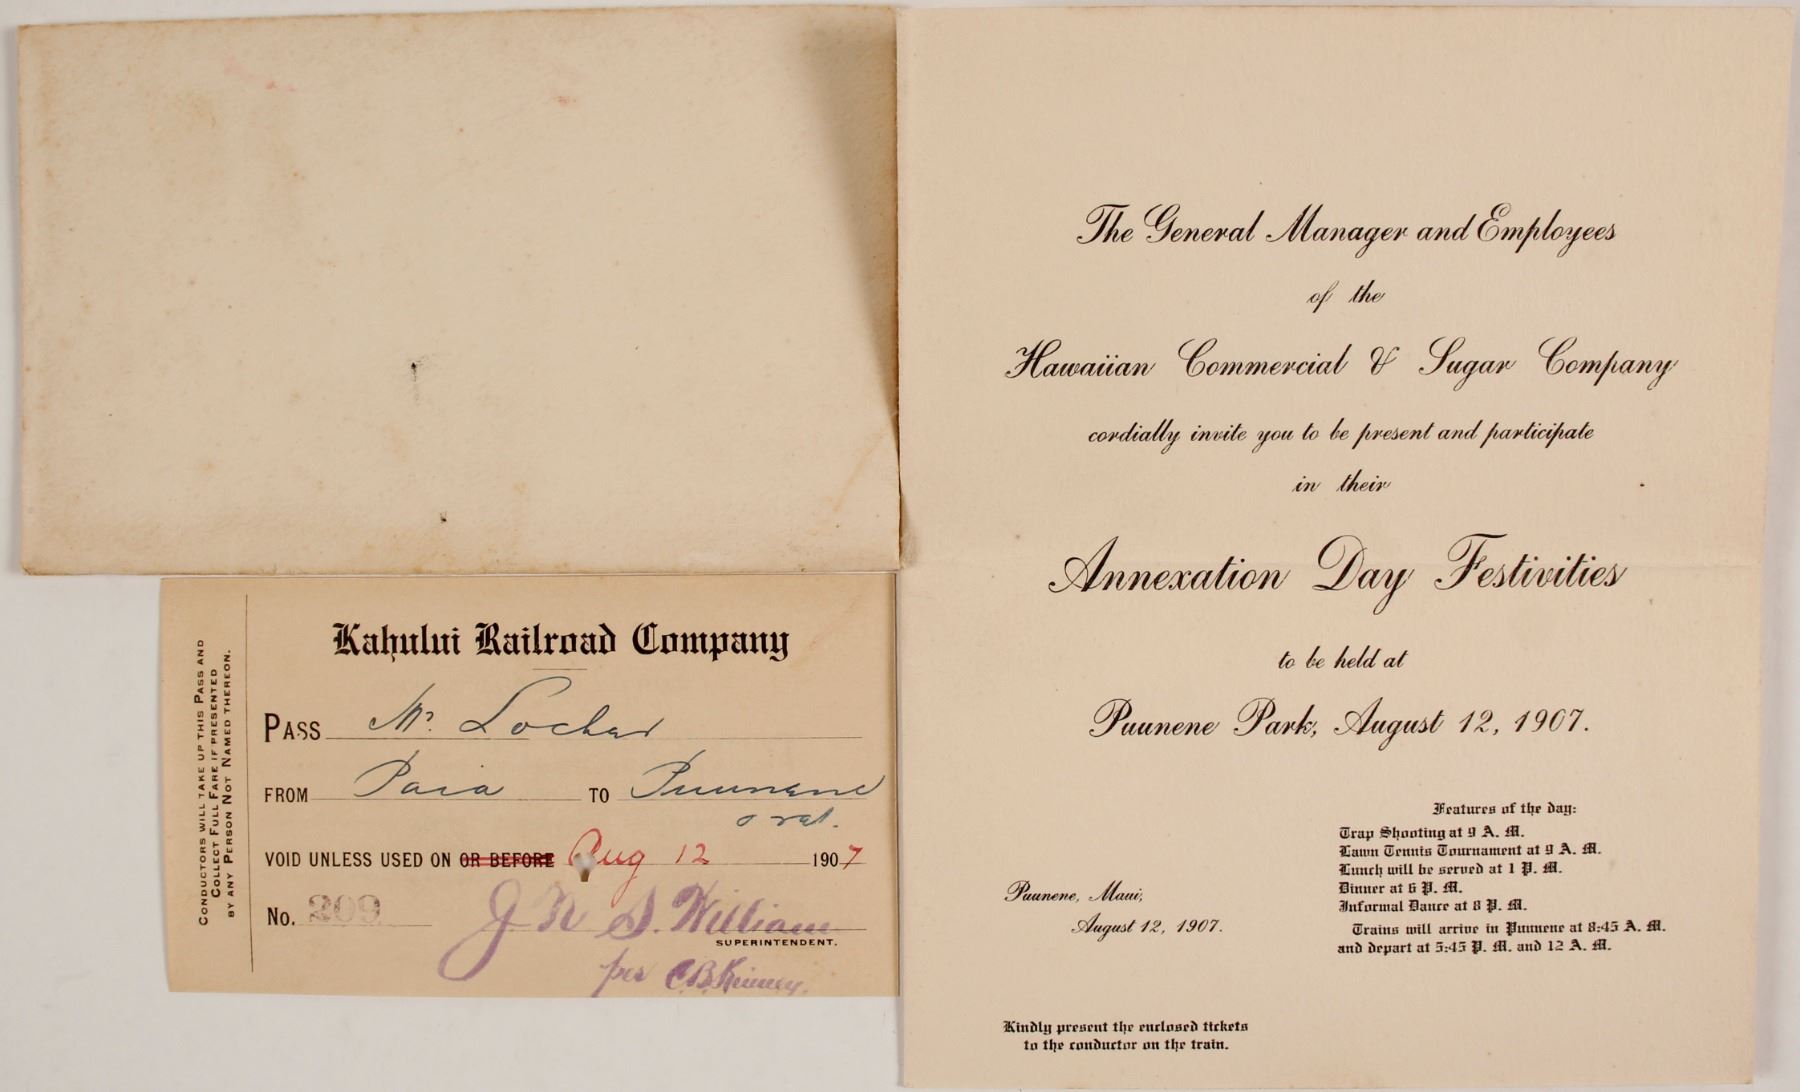 Kahului Railroad Company
PASS Mr Locher
FROM Paia TO Puunene
VOID UNLESS USED ON OR BEFORE Aug 12 1907
No. 209
J N S. William
SUPERINTENDENT.
per C.B. Kinney.
CONDUCTORS WILL TAKE UP THIS PASS AND
COLLECT FULL FARE IF PRESENTED
BY ANY PERSON NOT NAMED THEREON.
The General Manager and Employees
of the
Hawaiian Commercial & Sugar Company
cordially invite you to be present and participate
in their
Annexation Day Festivities
to be held at
Puunene Park, August 12, 1907.
Features of the day:
Trap Shooting at 9 A. M.
Lawn Tennis Tournament at 9 A. M.
Lunch will be served at 1 P. M.
Dinner at 6 P. M.
Informal Dance at 8 P. M.
Trains will arrive in Puunene at 8:45 A. M.
and depart at 5:45 P. M. and 12 A. M.
Puunene, Maui,
August 12, 1907.
Kindly present the enclosed tickets
to the conductor on the train.